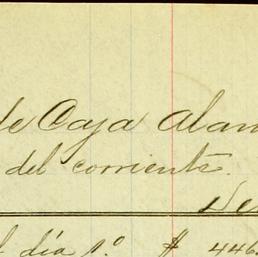 de Caja Alam
del corriente.
De
día 1.º $ 446